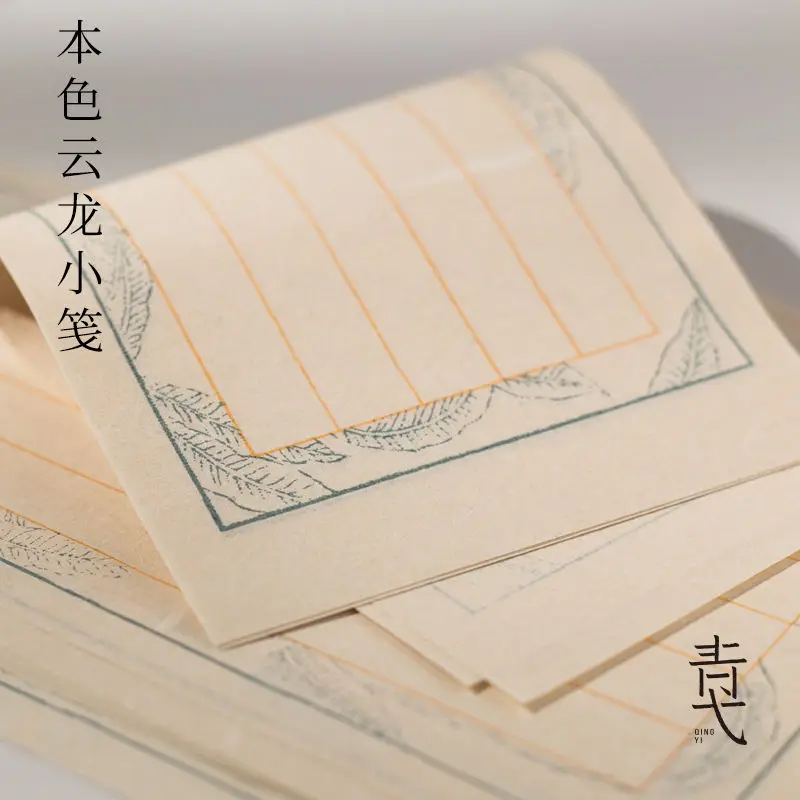 本色云龙小笺
青弋
QING
YI